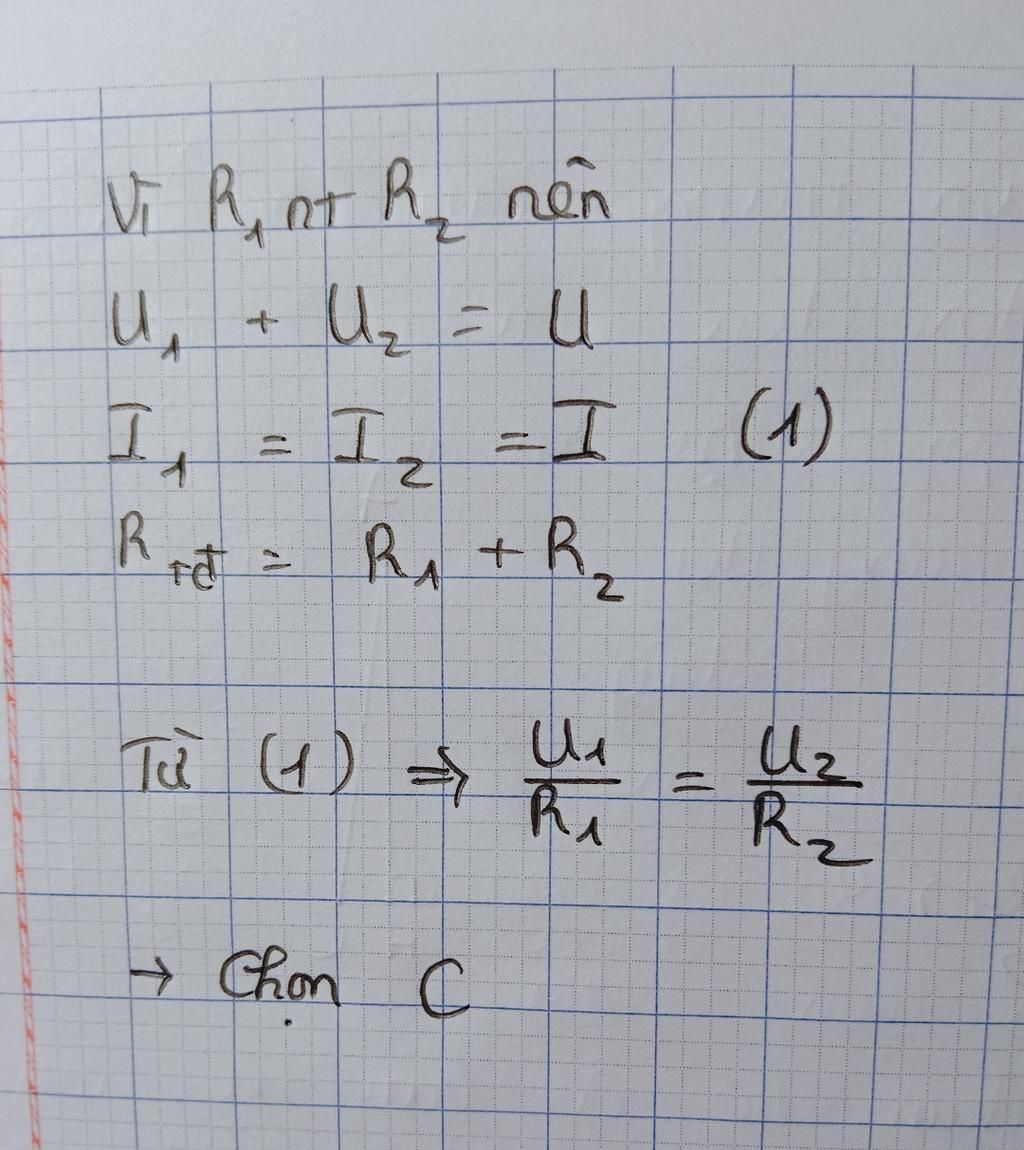 Vì R₁ nt R₂ nên
U₁ + U₂ = U
I₁ = I₂ = I (1)
R_tđ = R₁ + R₂
Từ (1) ⇒ U₁/R₁ = U₂/R₂
→ Chọn C